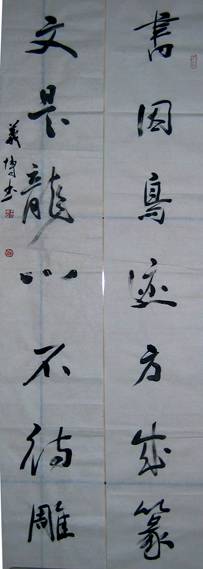 書因鳥迹方成篆
文是龍心不待雕
義博书